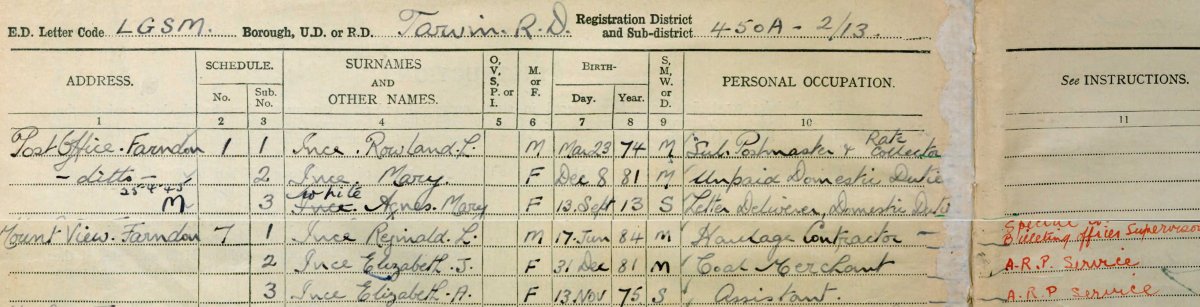 E.D. Letter Code LGSM. Borough, U.D. or R.D. Tarvin. R.D. Registration District and Sub-district 450A - 2/13.
ADDRESS. SCHEDULE. SURNAMES AND OTHER NAMES. O, V, S, P. or I. M. or F. BIRTH- S, M, W, or D. PERSONAL OCCUPATION. See INSTRUCTIONS.
No. Sub. No. Day. Year.
1 2 3 4 5 6 7 8 9 10 11
Post Office. Farndon 1 1 Ince. Rowland. L. M Mar 23 74 M Sub. Postmaster & Rate Collector
- ditto - 2 Ince. Mary F Dec 8 81 M Unpaid Domestic Duties
25-4-45 M 3 White Ince. Agnes. Mary F 13 Sept 13 S Letter Deliverer, Domestic Duties
Mount View. Farndon 7 1 Ince Reginald. L. M 17 Jun 84 M Haulage Contractor - Special Billeting Officer Supervisor
2 Ince Elizabeth. J. F 31 Dec 81 M Coal Merchant A.R.P Service
3 Ince Elizabeth. A. F 13 Nov 75 S Assistant. A.R.P Service